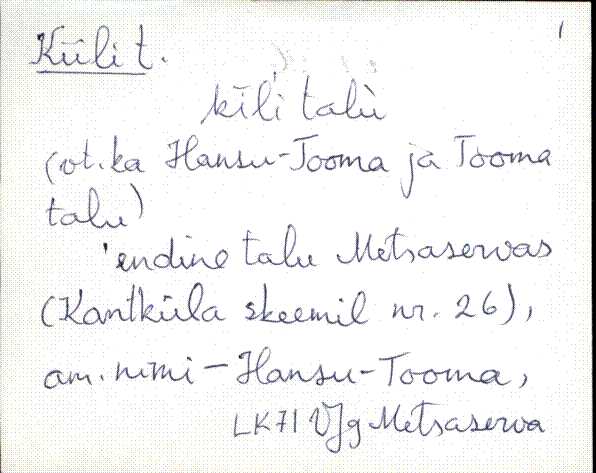 1
Kiili t.
kīli talù
(vt. ka Hansu-Tooma ja Tooma
talu)
'endine talu Metsaservas
(Kantküla skeemil nr. 26),
am. nimi – Hansu-Tooma,
LK 71 VJg Metsaserva